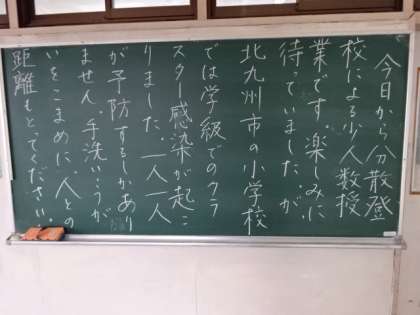 今日から分散登
校による少人数授
業です楽しみに
待っていました．が、
北九州市の小学校
では学級でのクラ
スター感染が起こ
りました．一人一人
が予防するしかあり
ません 手洗いうが
いをこまめに．人との
距離もとってください．